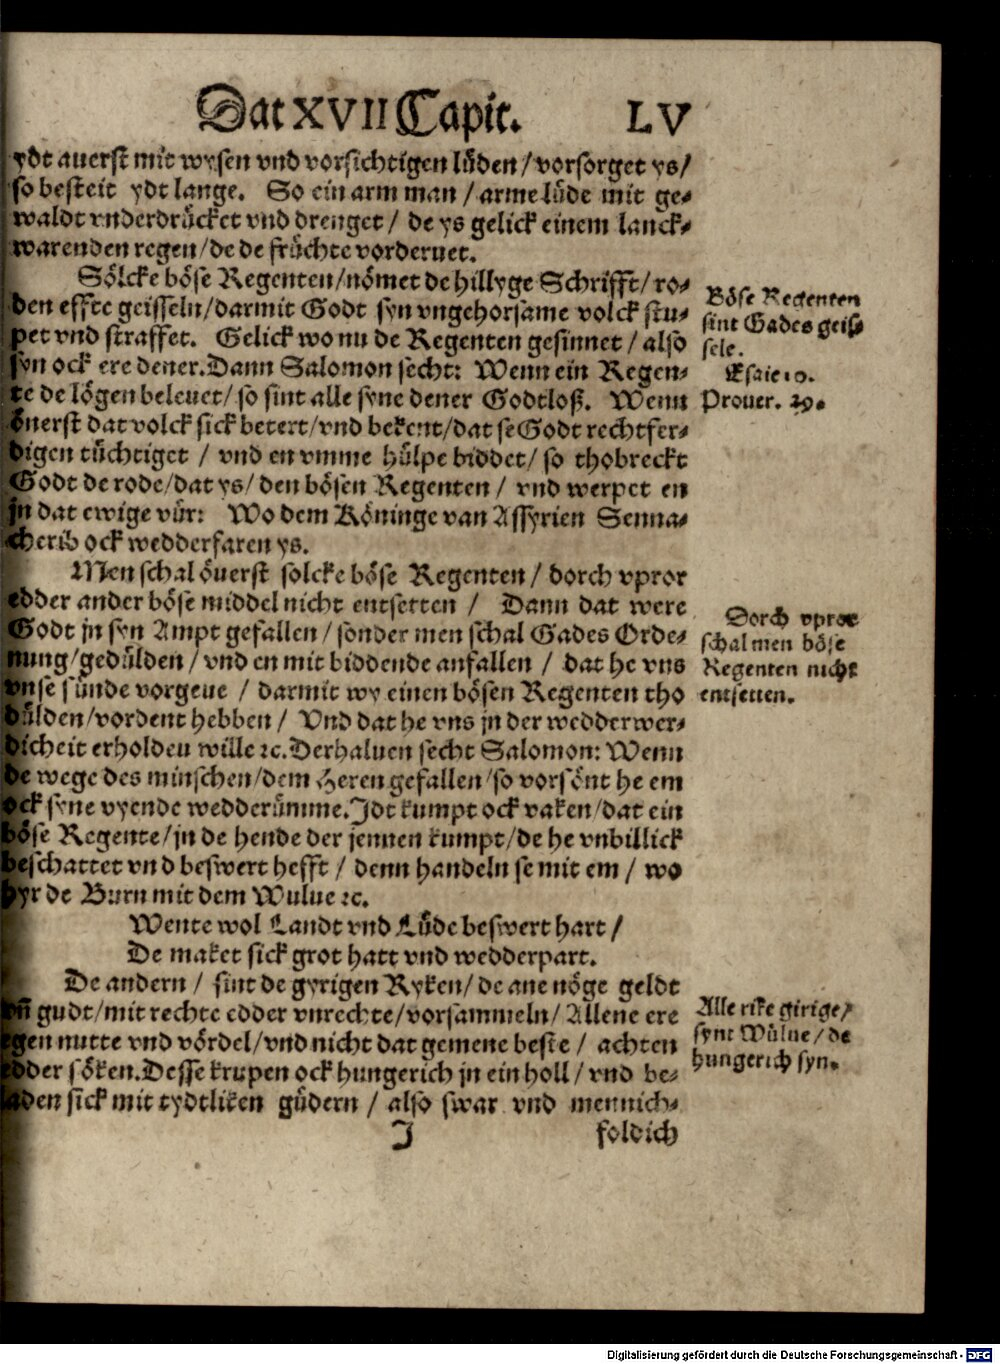 Dat XVII Capit. LV
ydt auerst mit wysen vnd vorsichtigen lüden / vorsorget ys /
so besteit ydt lange. So ein arm man / arme lüde mit ge-
waldt vnderdrücket vnd drenget / de ys gelick einem lanck-
warenden regen / de de früchte vorderuet.
Sölcke böse Regenten / nömet de hillyge Schrifft / ro-
den effte geisseln / darmit Godt syn vngehorsame volck stu-
pet vnd straffet. Gelick wo nu de Regenten gesinnet / also
syn ock ere dener. Dann Salomon secht: Wenn ein Regen-
te de lögen beleuet / so sint alle syne dener Godtloß. Wenn
öuerst dat volck sick betert / vnd bekent / dat se Godt rechtfer-
digen tüchtiget / vnd en vmme hülpe biddet / so thobreckt
Godt de rode / dat ys / den bösen Regenten / vnd werpet en
jn dat ewige vür: Wo dem Köninge van Assyrien Senna-
cherib ock wedderfaren ys.
Men schal öuerst solcke böse Regenten / dorch vpror
edder ander böse middel nicht entsetten / Dann dat were
Godt jn syn Ampt gefallen / sonder men schal Gades Orde-
nung / gedülden / vnd en mit biddende anfallen / dat he vns
vnse sünde vorgeue / darmit wy einen bösen Regenten tho
dülden / vordent hebben / Vnd dat he vns jn der wedderwer-
dicheit erholden wille ꝛc. Derhaluen secht Salomon: Wenn
de wege des minschen / dem Heren gefallen / so vorsönt he em
ock syne vyende wedderümme. Jdt kumpt ock vaken / dat ein
böse Regente / jn de hende der jennen kumpt / de he vnbillick
beschattet vnd beswert hefft / denn handeln se mit em / wo
hyr de Burn mit dem Wulue ꝛc.
Wente wol Landt vnd Lüde beswert hart /
De maket sick grot hatt vnd wedderpart.
De andern / sint de gyrigen Ryken / de ane nöge geldt
vñ gudt / mit rechte edder vnrechte / vorsammeln / Allene ere
egen nutte vnd vördel / vnd nicht dat gemene beste / achten
edder söken. Desse krupen ock hungerich jn ein holl / vnd be-
laden sick mit tydtliken güdern / also swar vnd mennich-
J foldich
Böse Regenten
sint Gades geis-
sele.
Esaie 10.
Prouer. 29.
Dorch vpror
schal men böse
Regenten nicht
entsetten.
Alle rike girige /
synt Wülue / de
hungerich syn.
Digitalisierung gefördert durch die Deutsche Forschungsgemeinschaft - DFG